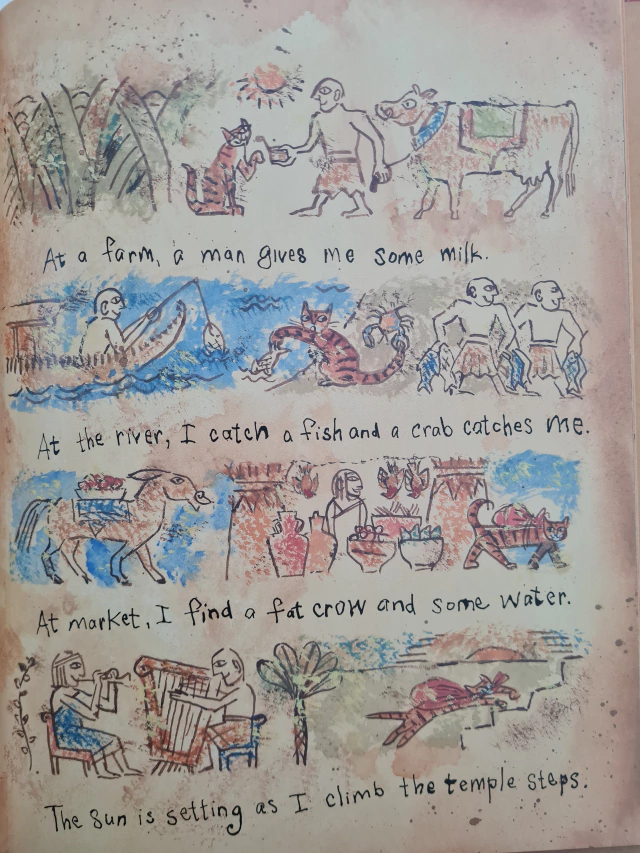 At a farm, a man gives me some milk.
At the river, I catch a fish and a crab catches me.
At market, I find a fat crow and some water.
The sun is setting as I climb the temple steps.